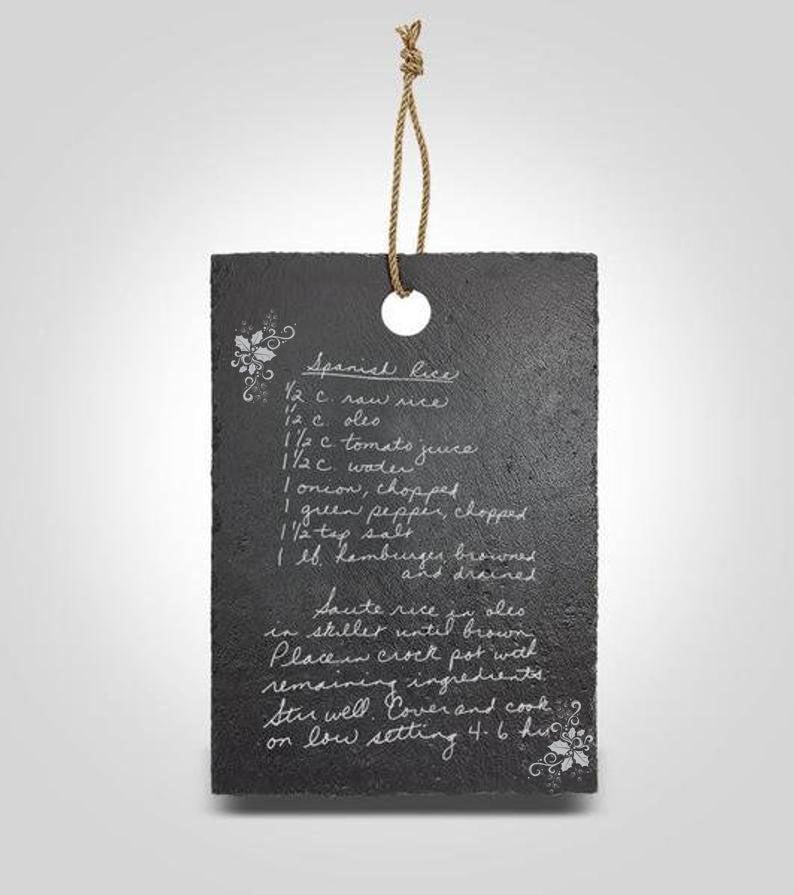 Spanish Rice
1/2 c. raw rice
1/2 c. oleo
1 1/2 c. tomato juice
1 1/2 c. water
1 onion, chopped
1 green pepper, chopped
1 1/2 tsp salt
1 lb. hamburger browned
and drained
Saute rice in oleo
in skillet until brown.
Place in crock pot with
remaining ingredients.
Stir well. Cover and cook
on low setting 4-6 hrs